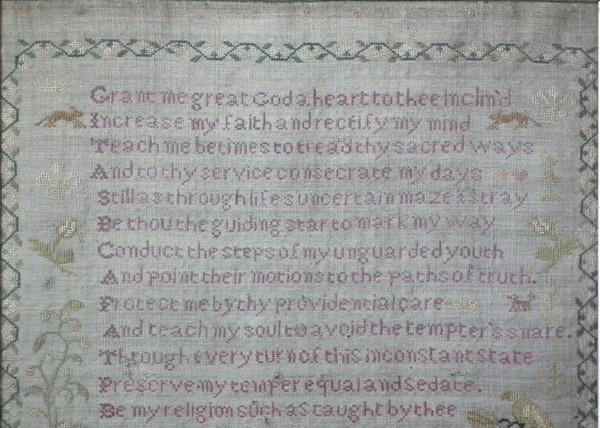 Grant me great God a heart to thee inclin'd
Increase my faith and rectify my mind
Teach me betimes to tread thy sacred ways
And to thy service consecrate my days
Still as through lifes uncertain maze I stray
Be thou the guiding star to mark my way
Conduct the steps of my unguarded youth
And point their motions to the paths of truth.
Protect me by thy providential care
And teach my soul to avoid the tempter's snare.
Through every turn of this inconstant state
Preserve my temper equal and sedate.
Be my religion such as taught by thee